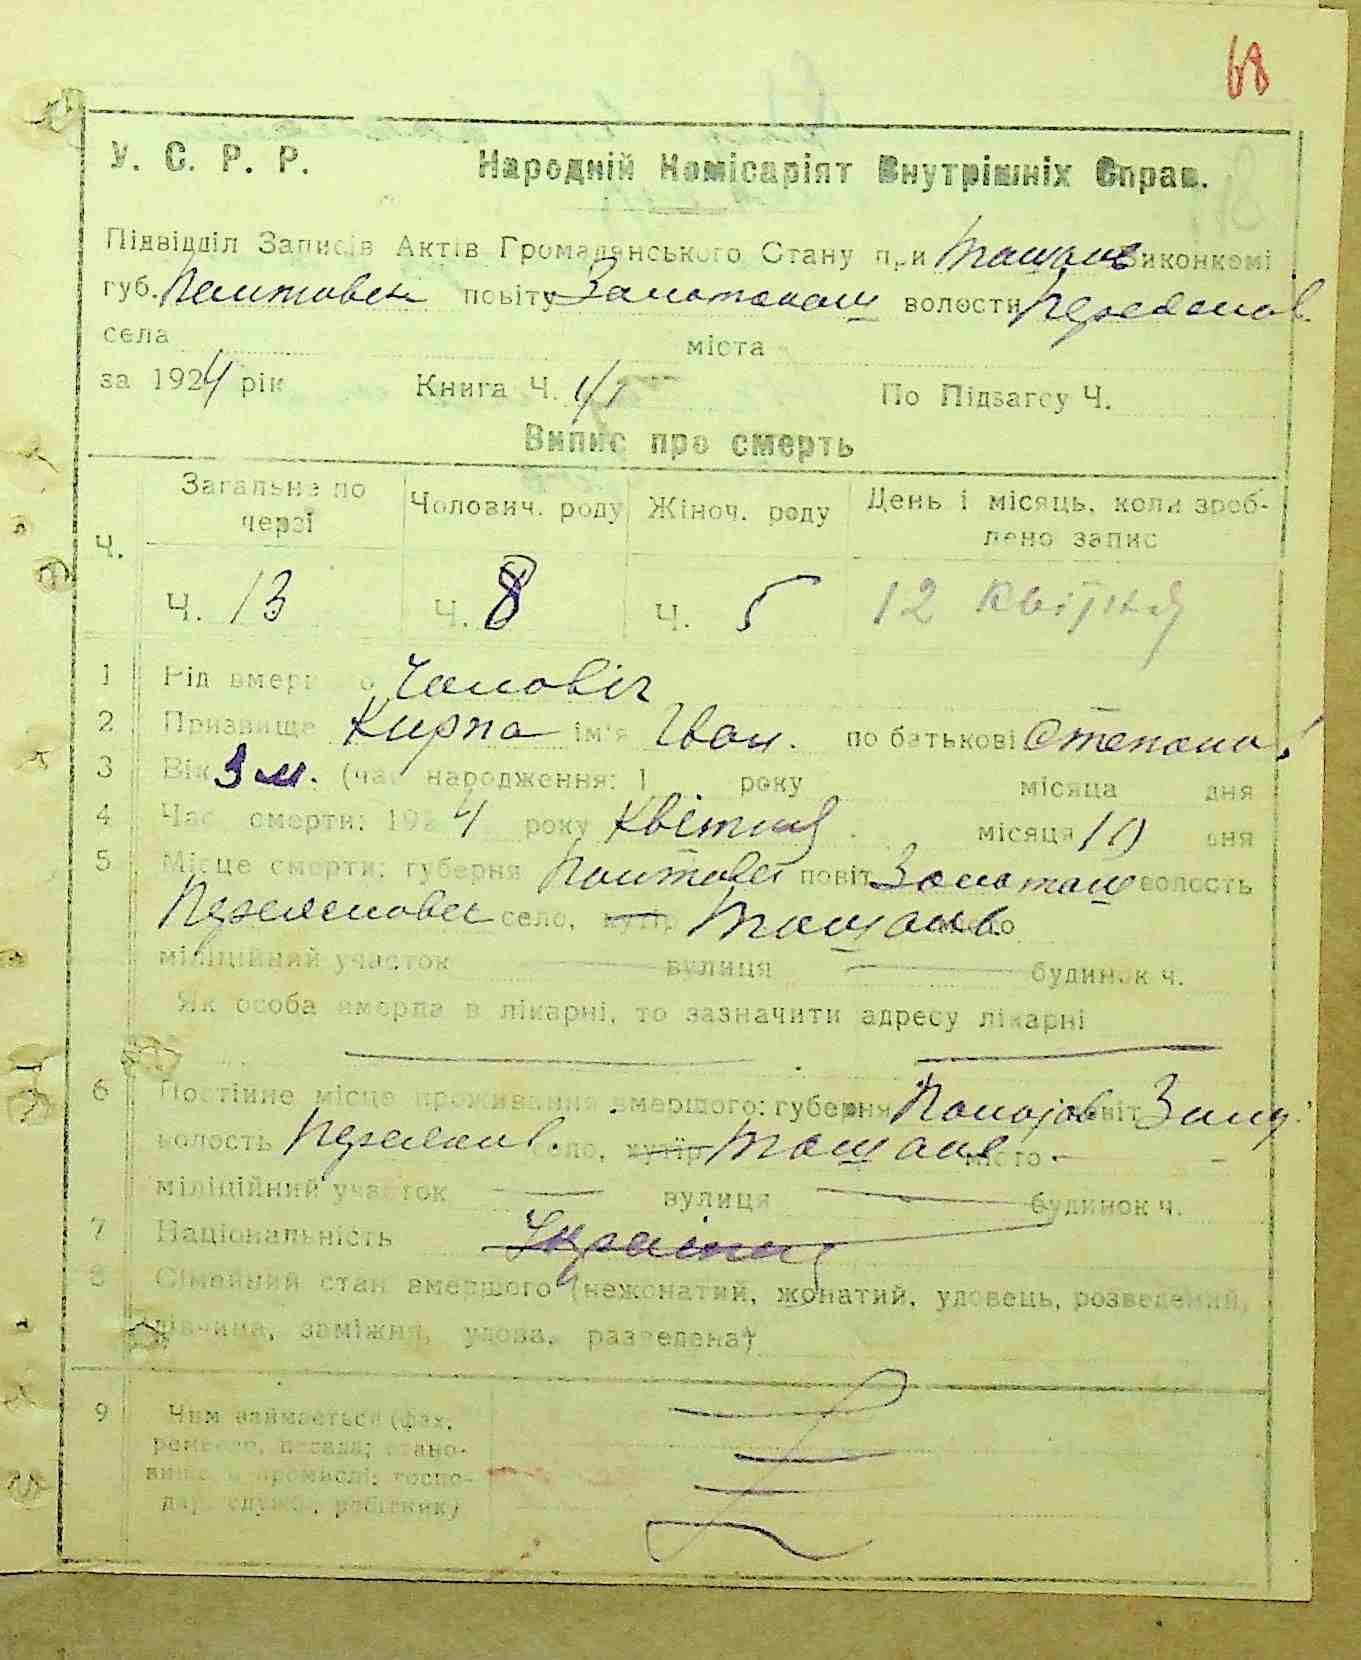 68
У. С. Р. Р. Народній Комісаріят Внутрішніх Справ.
Підвідділ Записів Актів Громадянського Стану при Ташанс Виконкомі
губ. Полтовськ повіту Золотонош волости
села міста
за 1924 рік Книга Ч. По Підзагсу Ч.
Випис про смерть
Ч. Загальне по черзі Чоловіч. роду Жіноч. роду День і місяць, коли зроблено запис
Ч. 13 Ч. 8 Ч. 5 12 квітня
1 Рід вмершого Чоловіч
2 Призвище Кирпа ім'я Іван. по батькові Степанов
3 Вік 3 м. (час народження: 1 року місяца дня
4 Час смерти: 1924 року Квітня місяця 10 дня
5 Місце смерти: губерня Полтовсь повіт Золотонош волость
село, хутір Ташань місто
міліційний участок вулиця будинок ч.
Як особа вмерла в лікарні, то зазначити адресу лікарні
6 Постійне місце проживання вмершого: губерня повіт
волость село, хутір Ташань місто
міліційний участок вулиця будинок ч.
7 Національність
8 Сімейний стан вмершого (нежонатий, жонатий, удовець, розведений,
дівчина, заміжня, удова, разведена)
9 Чим займається (фах,
ремесло, посада; стано-
вище в промислі: госпо-
дар, служб., робітник)